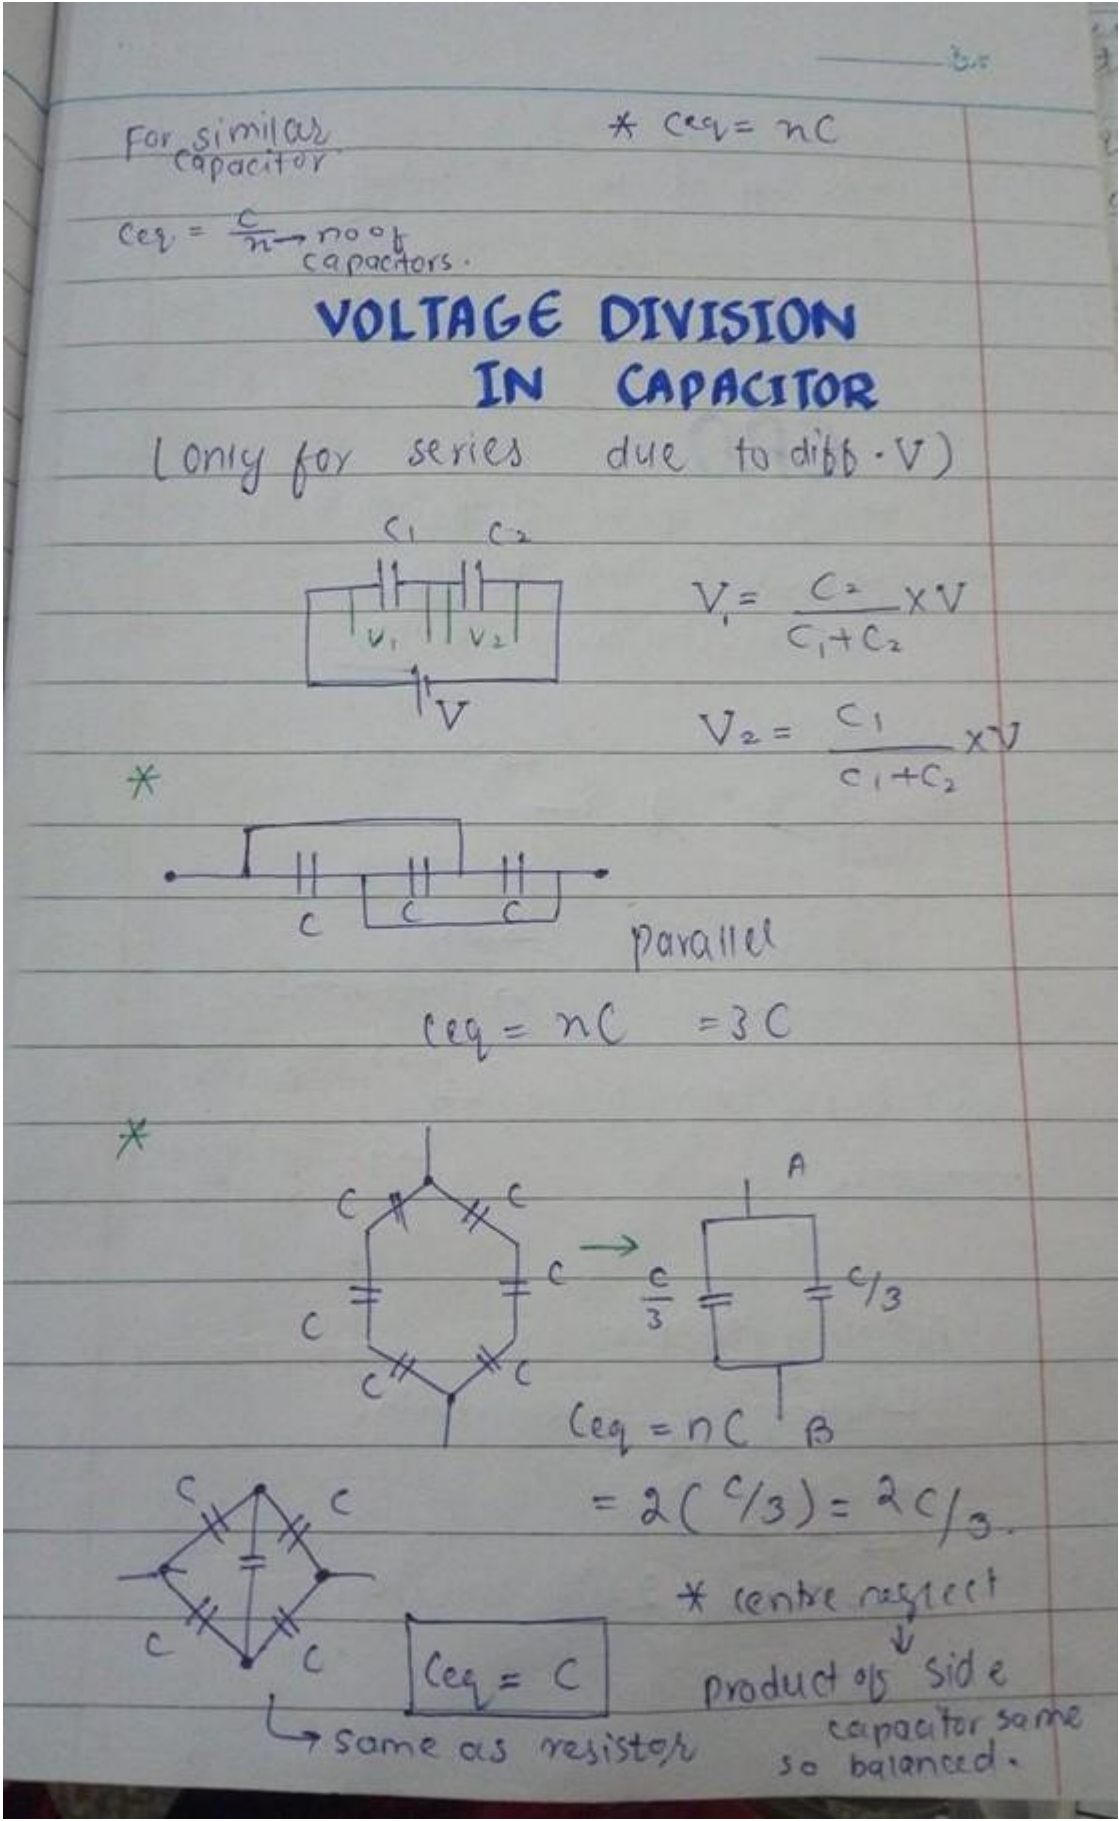 For similar
capacitor
* Ceq = nC
Ceq = C/n → no of
capacitors.
VOLTAGE DIVISION
IN CAPACITOR
(only for series due to diff. V)
C1 C2
V1 V2
V
V1 = C2/(C1+C2) × V
V2 = C1/(C1+C2) × V
*
C C C
parallel
Ceq = nC = 3C
*
C C
C C
C C
→
A
C/3 C/3
B
Ceq = nC
= 2(C/3) = 2C/3.
C C
C C
Ceq = C
→ same as resistor
* centre neglect
↓
product of side
capacitor same
so balanced.